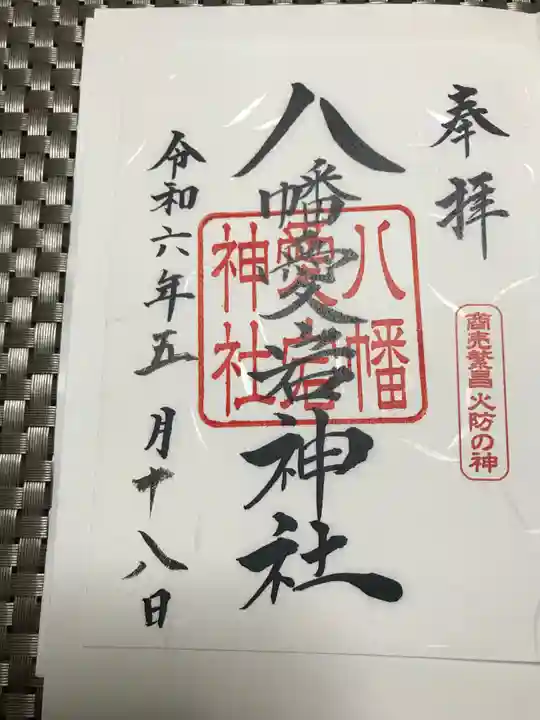 奉拝
商売繁昌 火防の神
八幡愛宕神社
八幡
愛宕
神社
令和六年五月十八日